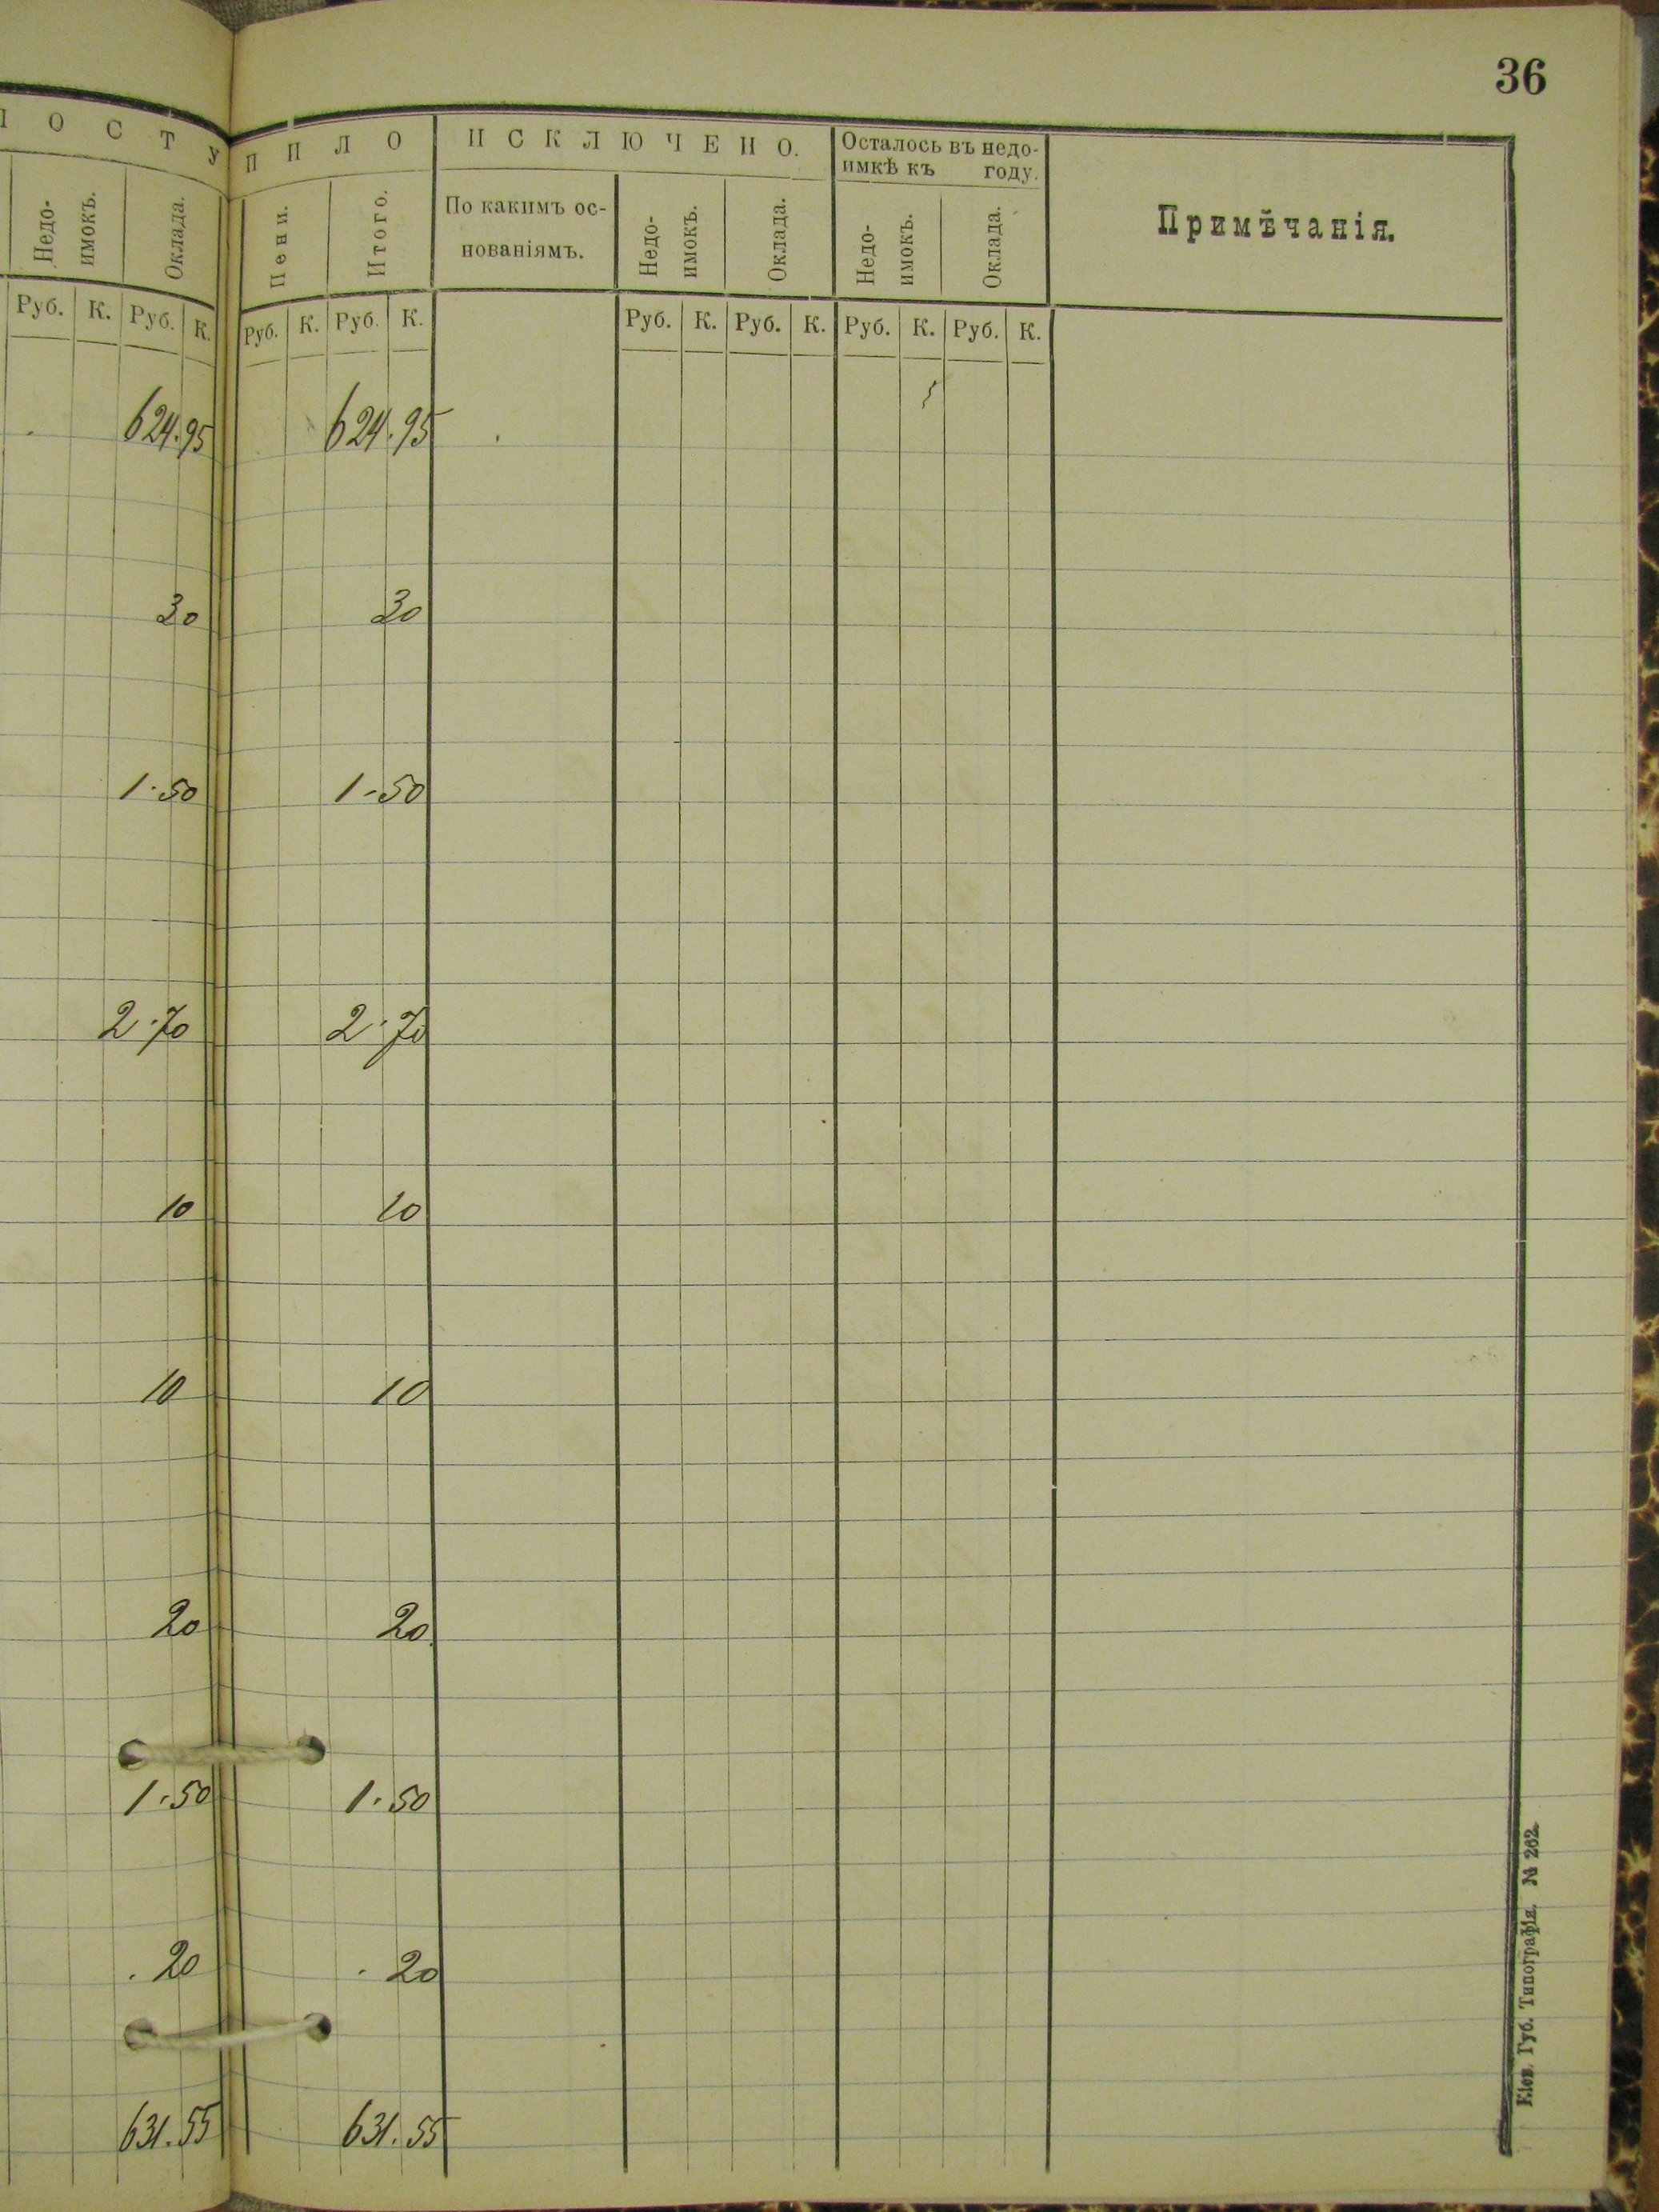 36
П О С Т У П И Л О
И С К Л Ю Ч Е Н О.
Осталось въ недо-
имкѣ къ году.
Примѣчанія.
Недо-
имокъ.
Оклада.
Пени.
Итого.
По какимъ ос-
нованіямъ.
Недо-
имокъ.
Оклада.
Недо-
имокъ.
Оклада.
Руб. К. Руб. К. Руб. К. Руб. К. Руб. К. Руб. К. Руб. К. Руб. К.
624.95 624.95
30 30
1.50 1-50
2.70 2.70
10 10
10 10
20 20
1.50 1.50
. 20 . 20
631.55 631.55
Кіев. Губ. Типографія. № 262.